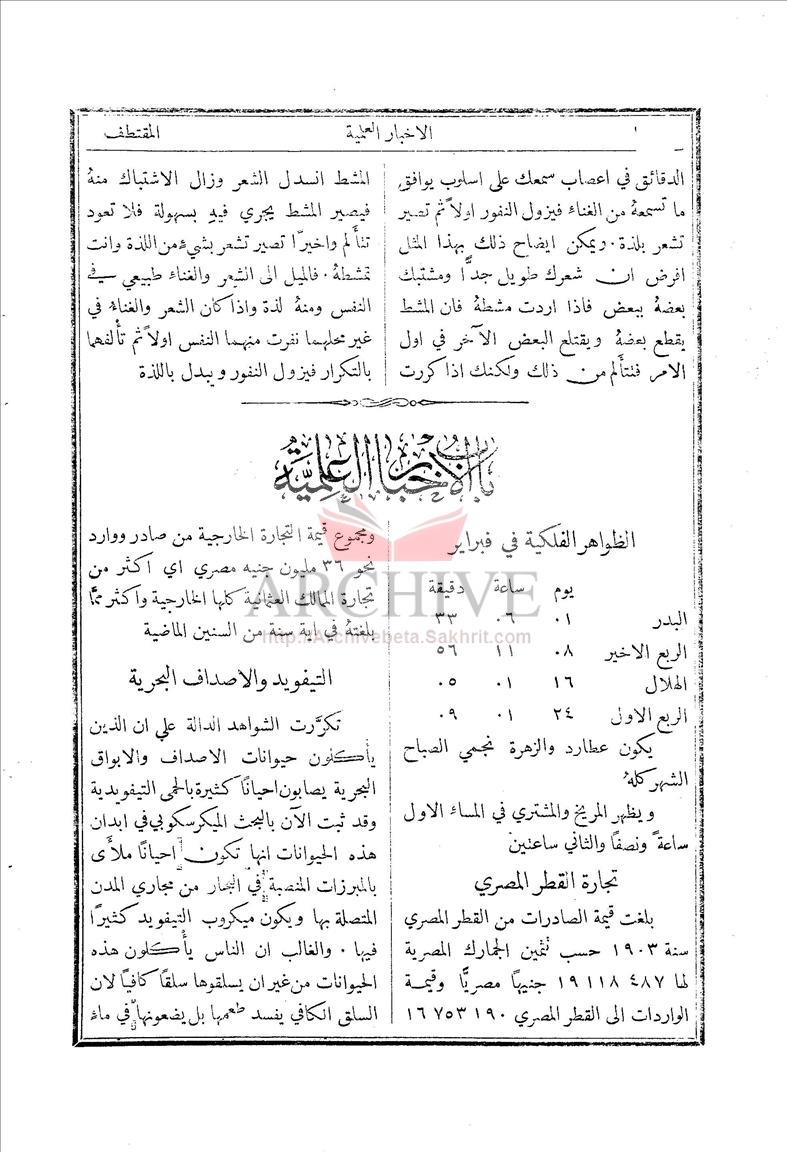 ١
الاخبار العلمية
المقتطف
الدقائق في اعصاب سمعك على اسلوب يوافق
ما تسمعهُ من الغناء فيزول النفور اولاً ثم تصير
تشعر بلذة . ويمكن ايضاح ذلك بهذا المثل
افرض ان شعرك طويل جدًّا ومشتبك
بعضهُ ببعض فاذا اردت مشطهُ فان المشط
يقطع بعضهُ ويقتلع البعض الآخر في اول
الامر فتتألم من ذلك ولكنك اذا كررت
المشط انسدل الشعر وزال الاشتباك منهُ
فيصير المشط يجري فيهِ بسهولة فلا تعود
تتألم واخيرًا تصير تشعر بشيءٍ من اللذة وانت
تمشطهُ . فالميل الى الشعر والغناء طبيعي في
النفس ومنهُ لذة واذا كان الشعر والغناء في
غير محلهما نفرت منهما النفس اولاً ثم تألفهما
بالتكرار فيزول النفور ويبدل باللذة
باب الاخبار العلمية
الظواهر الفلكية في فبراير
يوم ساعة دقيقة
البدر ٠١ ٠٦ ٣٣
الربع الاخير ٠٨ ١١ ٥٦
الهلال ١٦ ٠١ ٠٥
الربع الاول ٢٤ ٠١ ٠٩
يكون عطارد والزهرة نجمي الصباح
الشهر كلهُ
ويظهر المريخ والمشتري في المساء الاول
ساعةً ونصفًا والثاني ساعتين
تجارة القطر المصري
بلغت قيمة الصادرات من القطر المصري
سنة ١٩٠٣ حسب تثمين الجمارك المصرية
لها ٤٨٧ ١١٨ ١٩ جنيهًا مصريًّا وقيمة
الواردات الى القطر المصري ١٩٠ ٧٥٣ ١٦
ومجموع قيمة التجارة الخارجية من صادر ووارد
نحو ٣٦ مليون جنيه مصري اي اكثر من
تجارة الممالك العثمانية كلها الخارجية واكثر ممَّا
بلغتهُ في اية سنة من السنين الماضية
التيفويد والاصداف البحرية
تكرَّرت الشواهد الدالة على ان الذين
يأكلون حيوانات الاصداف والابواق
البحرية يصابون احيانًا كثيرة بالحمى التيفويدية
وقد ثبت الآن بالبحث الميكرسكوبي في ابدان
هذه الحيوانات انها تكون احيانًا ملأى
بالمبرزات المنصبة في البحار من مجاري المدن
المتصلة بها ويكون ميكروب التيفويد كثيرًا
فيها . والغالب ان الناس يأكلون هذه
الحيوانات من غير ان يسلقوها سلقًا كافيًا لان
السلق الكافي يفسد طعمها بل يضعونها في ماء
ARCHIVE
http://Archivebeta.Sakhrit.com